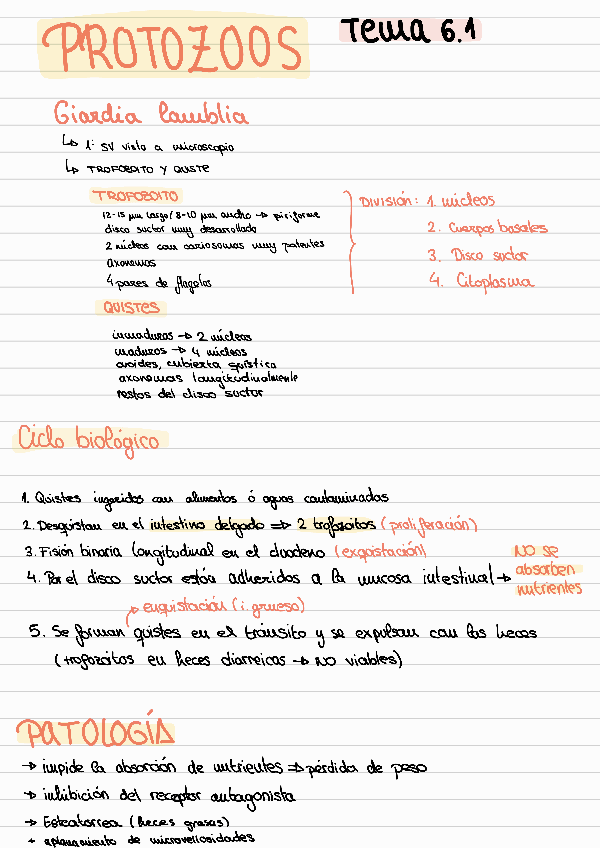 PROTOZOOS
Tema 6.1
Giardia lamblia
↳ 1º SV visto a microscopio
↳ TROFOZOITO Y QUISTE
TROFOZOITO
12-15 µm largo / 8-10 µm ancho → piriforme
disco suctor muy desarrollado
2 núcleos con cariosomas muy patentes
axonemas
4 pares de flagelos
DIVISIÓN: 1. núcleos
2. Cuerpos basales
3. Disco suctor
4. Citoplasma
QUISTES
inmaduros → 2 núcleos
maduros → 4 núcleos
ovoides, cubierta quística
axonemas longitudinalmente
restos del disco suctor
Ciclo biológico
1. Quistes ingeridos con alimentos ó aguas contaminadas
2. Desquistan en el intestino delgado ⇒ 2 trofozoitos (proliferación)
3. Fisión binaria longitudinal en el duodeno (exquistación)
4. Por el disco suctor están adheridos a la mucosa intestinal →
NO se
absorben
nutrientes
enquistación (i. grueso)
5. Se forman quistes en el tránsito y se expulsan con las heces
(trofozoitos en heces diarreicas → NO viables)
PATOLOGÍA
→ impide la absorción de nutrientes ⇒ pérdida de peso
→ inhibición del receptor antagonista
→ Esteatorrea (heces grasas)
→ aplanamiento de microvellosidades